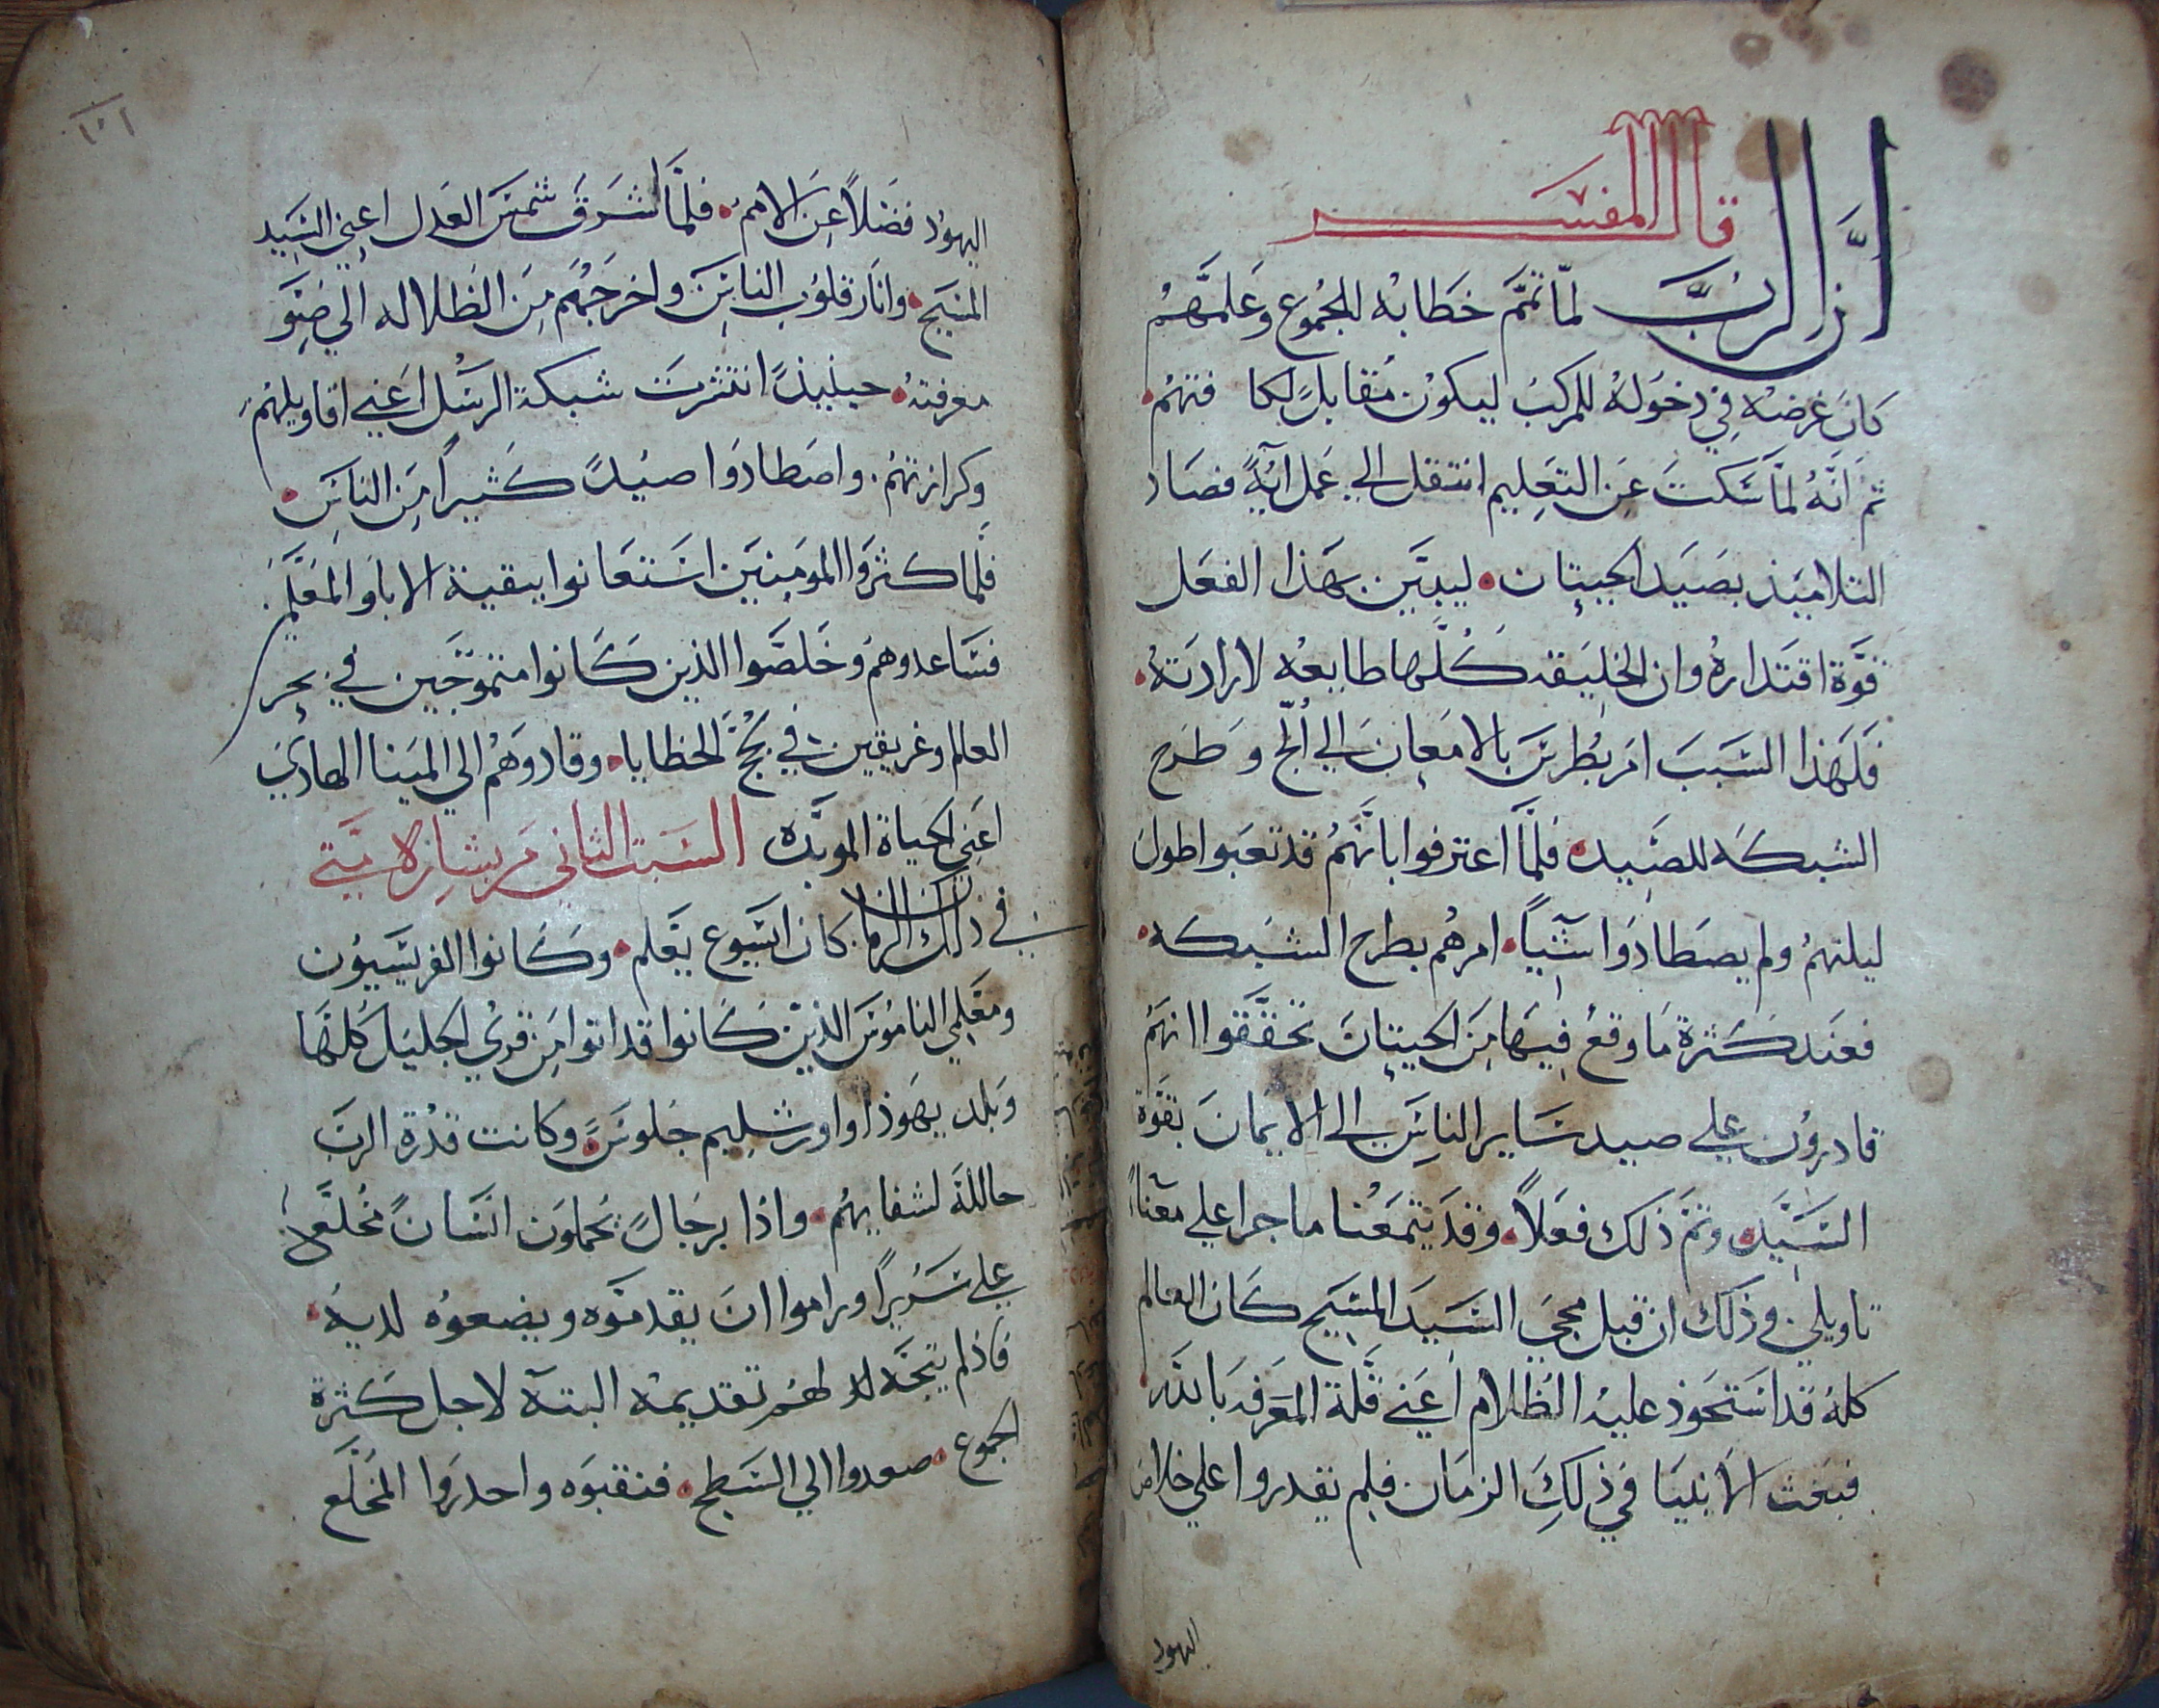 قال المفسر
ان الرب لما تمم خطابه للجموع وعلمهم
كان غرضه في دخوله للمركب ليكون مقابل لكافتهم
ثم انه لما سكت عن التعليم انتقل الي عمل اية فصاد
التلاميذ بصيد الحيتان ليبين بهذا الفعل
قوة اقتداره وان الخليقه كلها طايعه لارادته
فلهذا السبب امر بطرس بالامعان الي اللج وطرح
الشبكه للصيد فلما اعترفوا بانهم قد تعبوا طول
ليلتهم ولم يصطادوا شيا امرهم بطرح الشبكه
فعند كثرة ما وقع فيها من الحيتان تحققوا انهم
قادرون علي صيد ساير الناس الي الايمان بقوة
السيد وتم ذلك فعلا وقد يتمعنا ما جرا علي معنا
تاويلي وذلك ان قبل مجي السيد المسيح كان العالم
كله قد استحوذ عليه الظلام اعني قلة المعرفه بالله
فبعث الانبيا في ذلك الزمان فلم يقدروا علي خلاص
اليهود
١٠١
اليهود فضلا عن الامم فلما اشرق شمس العدل اعني السيد
المسيح وانار قلوب الناس واخرجهم من الظلاله الي ضو
معرفته حينيذ انتشرت شبكة الرسل اعني اقاويلهم
وكرازتهم واصطادوا صيد كثيرا من الناس
فلما كثروا المومنين استعانوا ببقية الابا والمعلمين
فساعدوهم وخلصوا الذين كانوا متموجين في بحر
العالم وغريقين في لجج الخطايا وقادوهم الي المينا الهادي
اعني الحياة الموبده السبت الثاني من بشارة متي
في ذلك الزمان كان ايسوع يعلم وكانوا الفريسيون
ومعلمي الناموس الذين كانوا قد اتوا من قري الجليل كلها
وبلد يهوذا واورشليم جلوس وكانت قدرة الرب
حاللة لشفايهم واذا برجال يحملون انسان مخلعا
علي سريرا وراموا ان يقدموه ويضعوه لديه
فاذ لم يتجه لهم تقديمه البتة لاجل كثرة
الجموع صعدوا الي السطح فنقبوه واحدروا المخلع